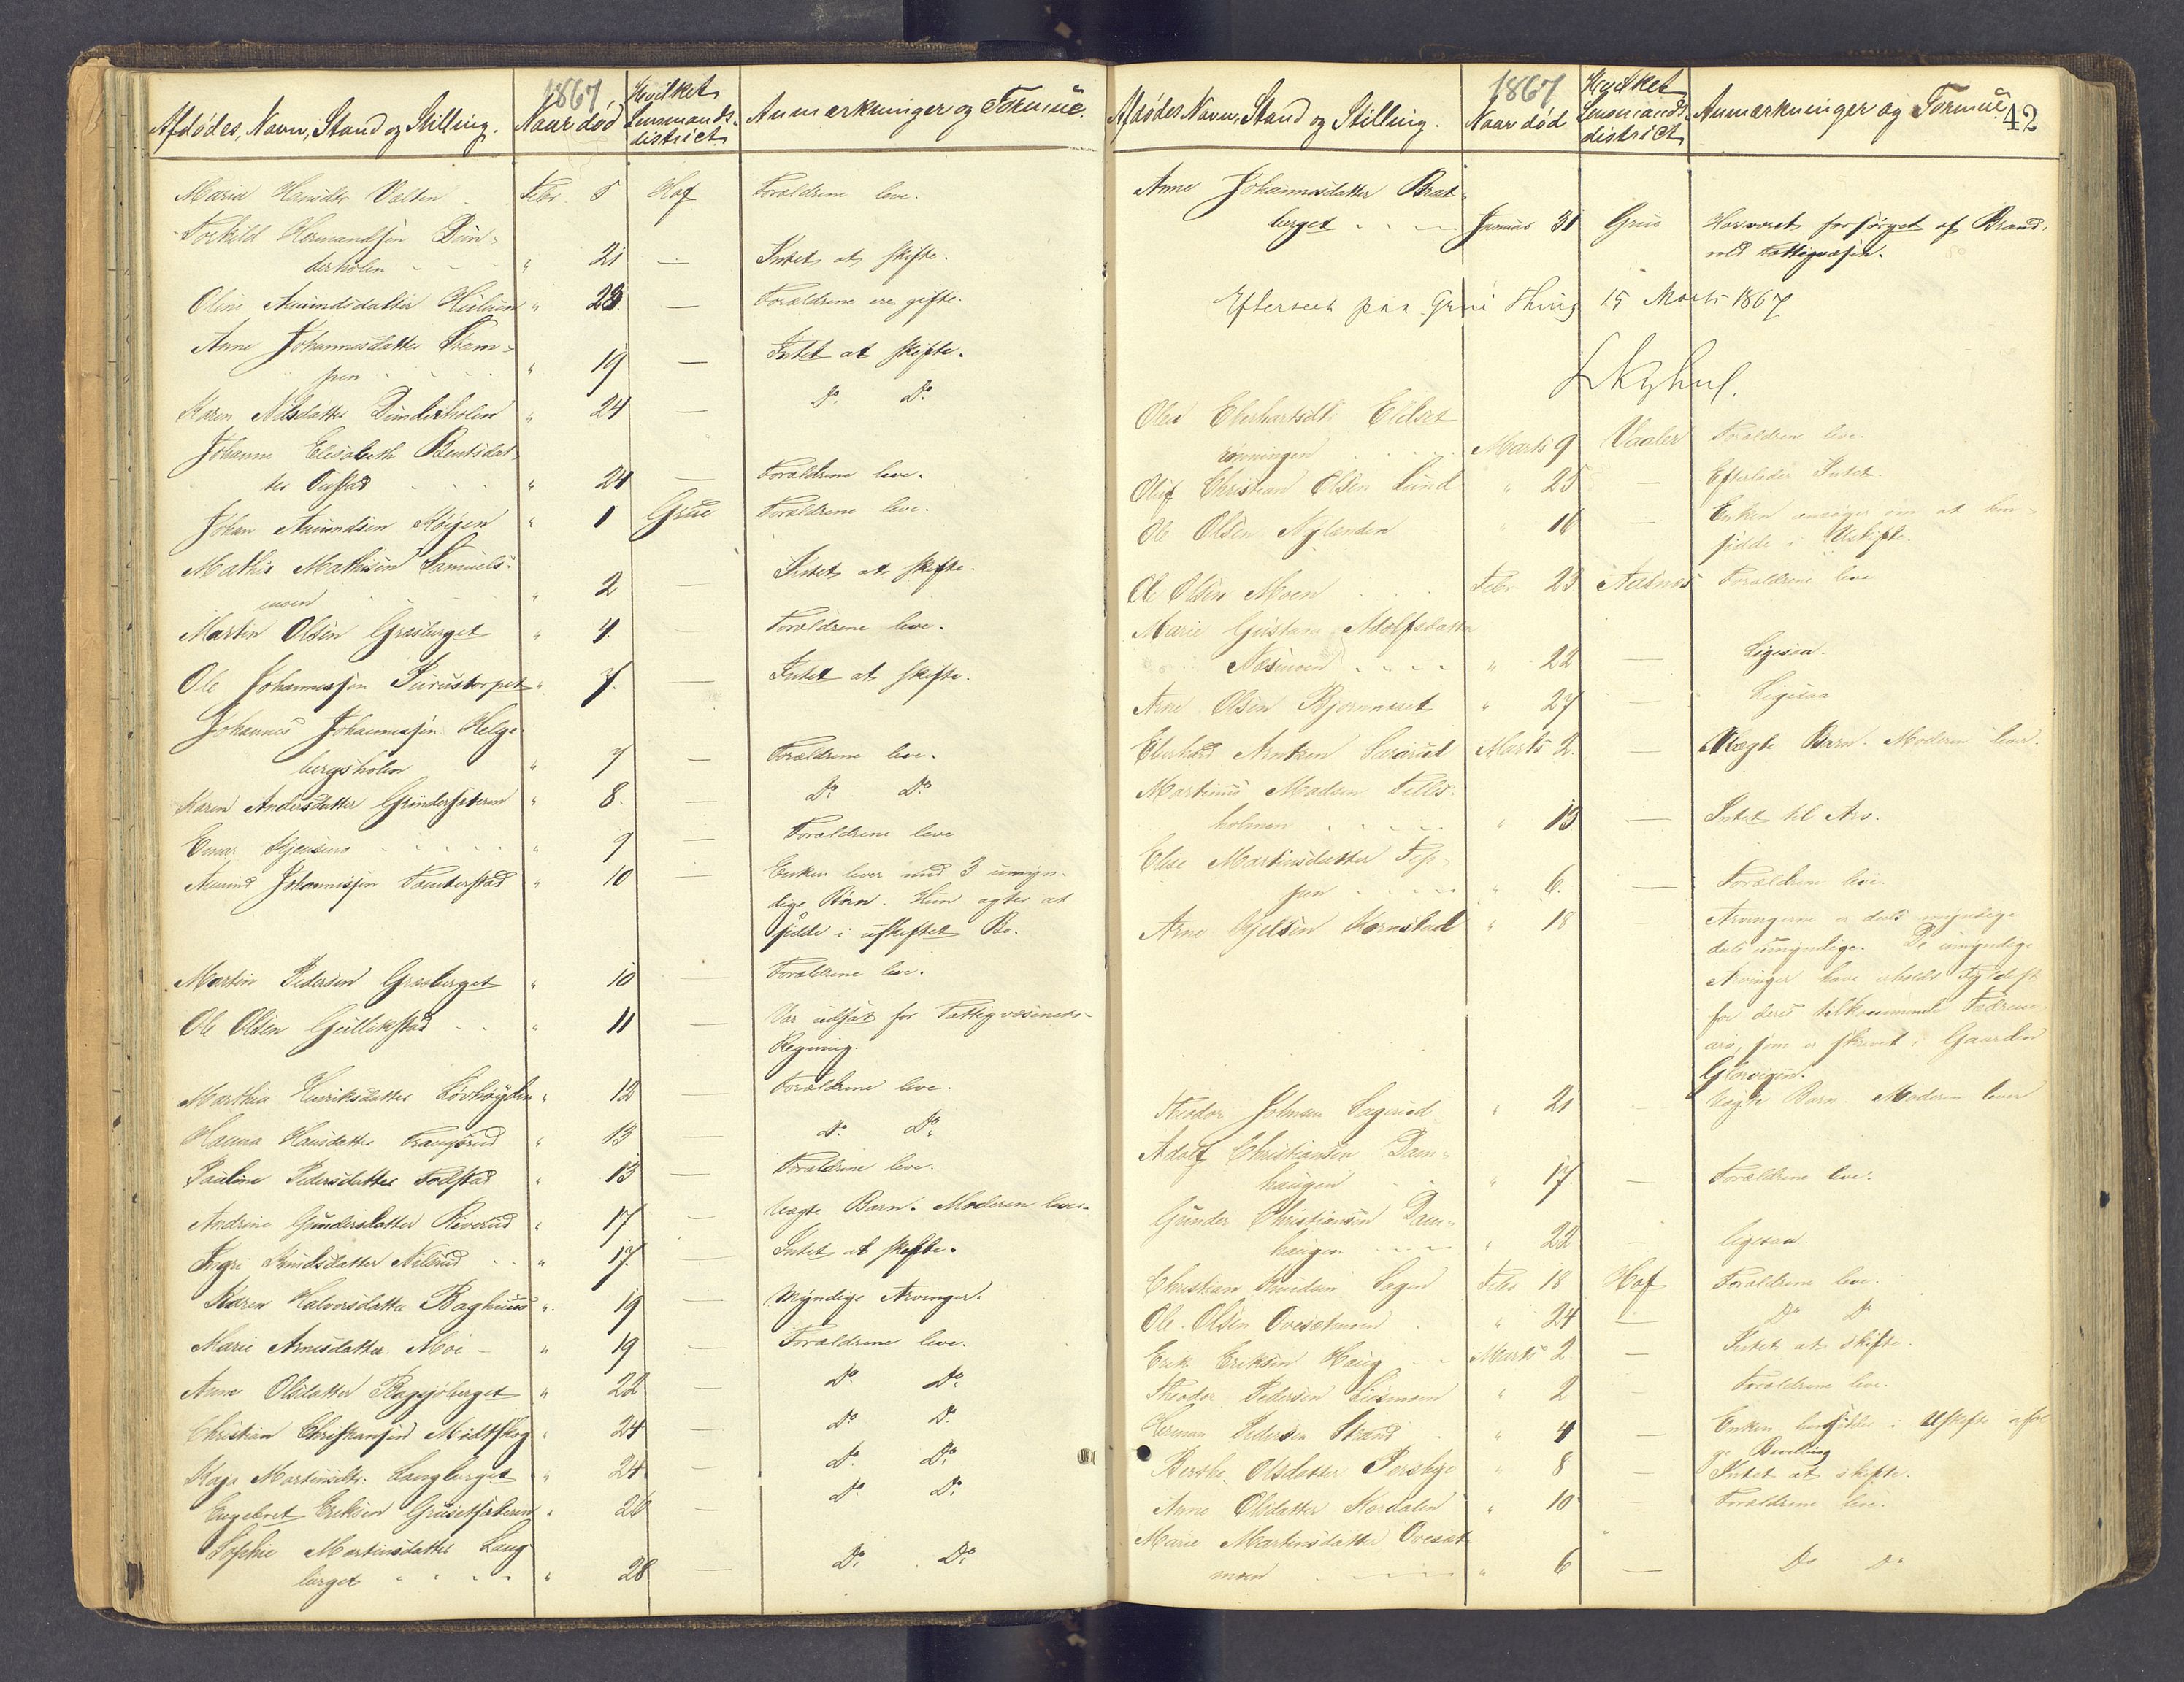 Afdödes Navn, Stand og Stilling.
1867
Naar död
Hvilket
Lensmands-
district
Anmerkninger og Formue.
Maria Hansdtr Velten Febr. 5 Hof Forældrene leve.
Torkild Hermandsen Dun-
derholen " 21 — Intet at skifte.
Oline Amundsdatter " 23 — Forældrene ere gifte.
Anne Johannesdatter Stam-
pen " 19 — Intet at skifte.
Karen Nilsdatter Dunderholen " 24 — Do. Do.
Johanne Elisabeth Berntsdat-
ter Opstad " 24 — Forældrene leve.
Johan Amundsen Höijen " 1 Grue Forældrene leve.
Mathis Mathisen Samuels-
moen " 2 — Intet at skifte.
Martin Olsen Græsberget " 4 — Forældrene leve.
Ole Johannessen Purustorpet " 7. — Intet at skifte.
Johannes Johannessen Helge-
bergsholen " 7 — Forældrene leve.
Karen Andersdatter Grindersæteren " 8. — Do. Do
" 9 — Forældrene leve
Amund Johannissen " 10 — Enken lever med 3 umyn-
dige Börn. Hun agter at
sidde i uskiftet Bo.
Martin Pedersen Græsberget " 10 — Forældrene leve.
Ole Olsen Gulliksstad " 11 — Var udsat for Fattigvæsinets
Regning.
Marthia Henriksdatter Lövhöyden " 12 — Forældrene leve.
Hanna Hansdatter " 13 — Do. Do.
Pauline Pedersdatter " 13 — Forældrene leve.
Andrine Gundersdatter Kiverud " 17 — Uægte Barn. Moderen lever.
Ingri Knudsdatter Nilsrud " 17. — Intet at skifte.
Karen Halvorsdatter Baghuus " 19 — Myndige Arvinger.
Marie Arnesdatter Moe " 19 — Forældrene leve.
Anne Olsdatter Rögsjöberget " 22 — Do. Do.
Christian Christiansen Midtskog " 24 — Do. Do.
Kaja Martinsdtr. Langberget " 24 — Do. Do.
Engebret Eriksen Gruesætsæteren " 26 — Do. Do.
Sophie Martinsdatter Lang-
berget " 28 — Do. Do.
Afdödes Navn, Stand og Stilling.
1867
Naar död
Hvilket
Lensmands-
district
Anmærkninger og Formue
42
Anne Johannesdatter Brat-
berget Januar 31 Grue Har været forsörget af Brand-
vold Fattigvæsen.
Efterseet paa Grue Thing 15 Marts 1867
Olea Eberhartsdt. Eidset
rönningen Marts 9 Vaaler Forældrene leve.
Oluf Christian Olsen Lund " 25 — Efterlader Intet.
Ole Olsen Nylænden " 16 — Enken ansöger om at hen-
sidde i Uskifte.
Ole Olsen Moen Febr. 23 Aasnæs Forældrene leve
Marie Gustava Adolfsdatter
Næsmoen " 22 — Ligesaa.
Arne Olsen Bjørnnæset " 27 — Ligesaa
Eberhard Arntzen Marts 2. — Uægte Barn. Moderen lever.
Martinus Madsen
holmen " 13 — Intet til Arv.
Else Martinsdatter Tep-
pen " 6. — Forældrene leve.
Arne Kjelsen Kornstad " 18 — Arvingerne er dels myndige
dels umyndige. De umyndige
Arvinger have erholdt
for deres tilkommende Fædrene-
arv, som er skrevet i Gaarden
Glorvigen.
Theodor Johnsen Sagerud " 21 — Uægte Barn. Moderen lever
Adolf Christiansen Dam-
haugen " 17. — Forældrene leve.
Gunder Christiansen Dam-
haugen " 22 — ligesaa.
Christian Knudsen Sagen Febr 18 Hof Forældrene leve.
Ole Olsen Ovesætmoen " 24 — Do Do
Erik Eriksen Haug Marts 2 — Intet at skifte.
Theodor Pedersen Liermoen " 2 — Forældrene leve.
Herman Pedersen Strand " 4 — Enken hensidder i Uskifte iföl-
ge Bevilling
Berthe Olsdatter " 8 — Intet at skifte.
Anne Olsdatter Nordalen " 10 — Forældrene leve.
Marie Martinsdatter Ovesæt-
moen " 6 — Do Do